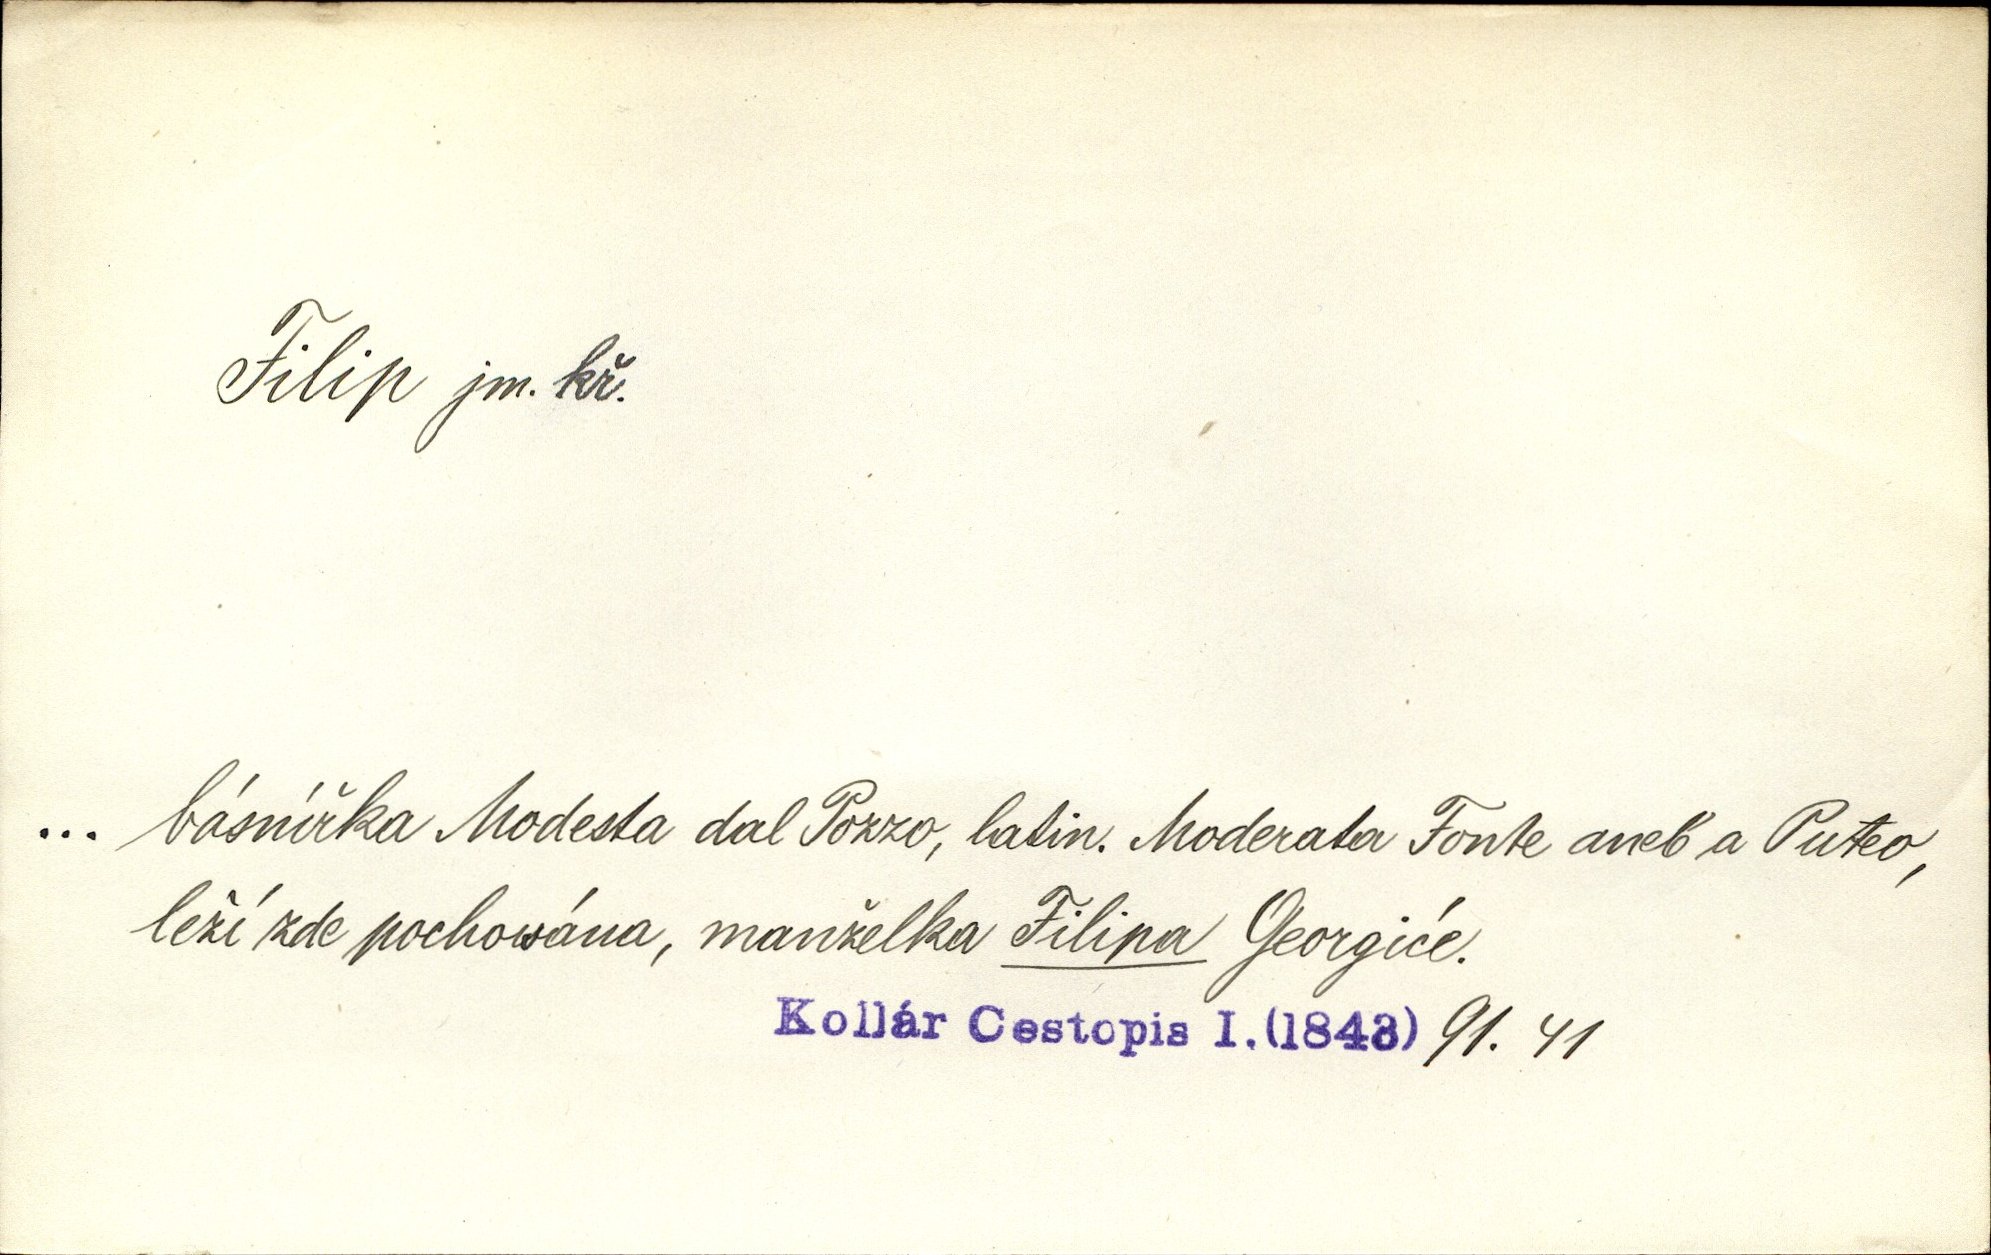 Filip jm. kř.
... básnířka Modesta dal Pozzo, latin. Moderata Fonte aneb a Puteo,
leží zde pochowána, manželka Filipa Georgiće.
Kollár Cestopis I.(1843) 91. 41